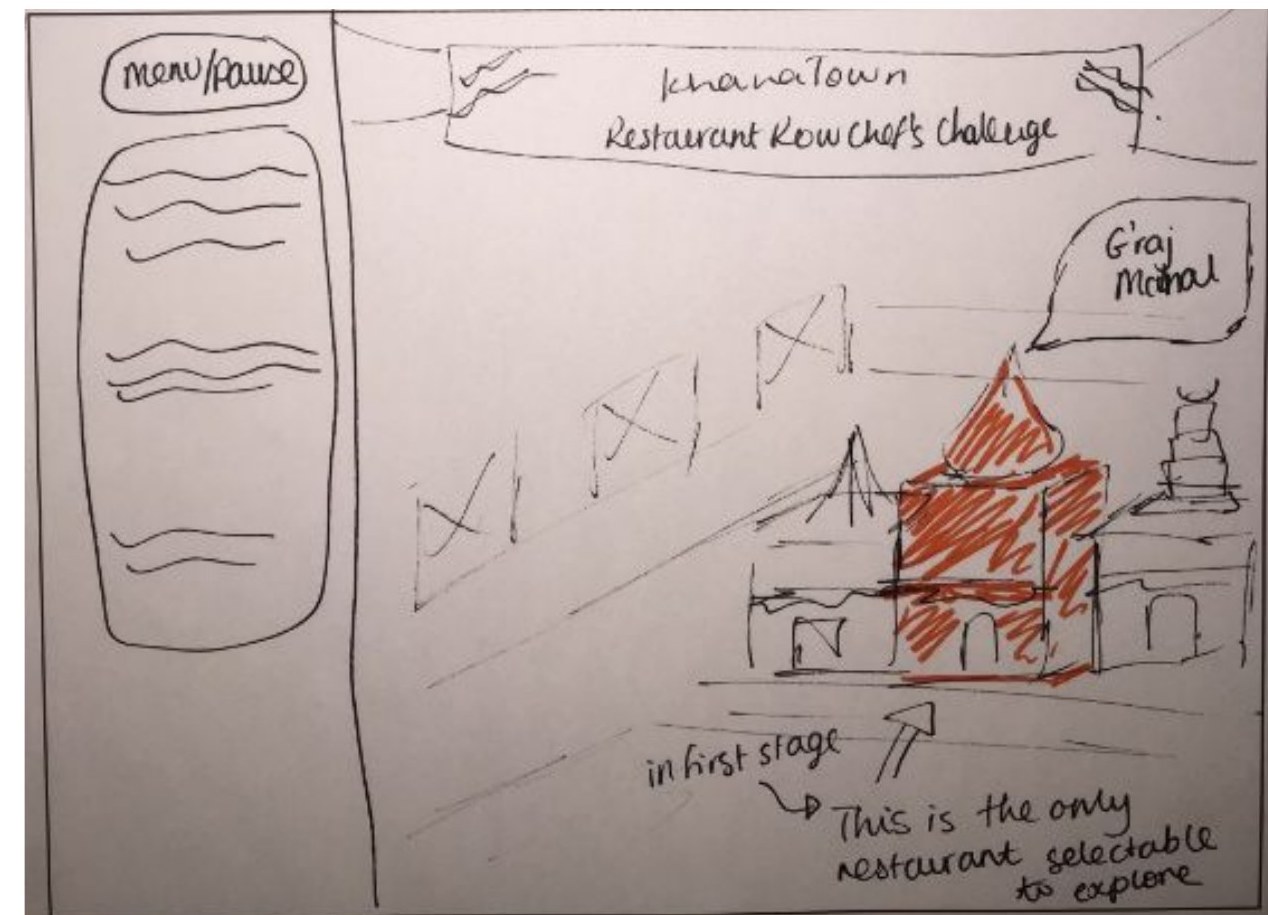 menu/pause
KhanaTown
Restaurant Row Chef's Challenge
G'raj
Mahal
in first stage
This is the only
restaurant selectable
to explore